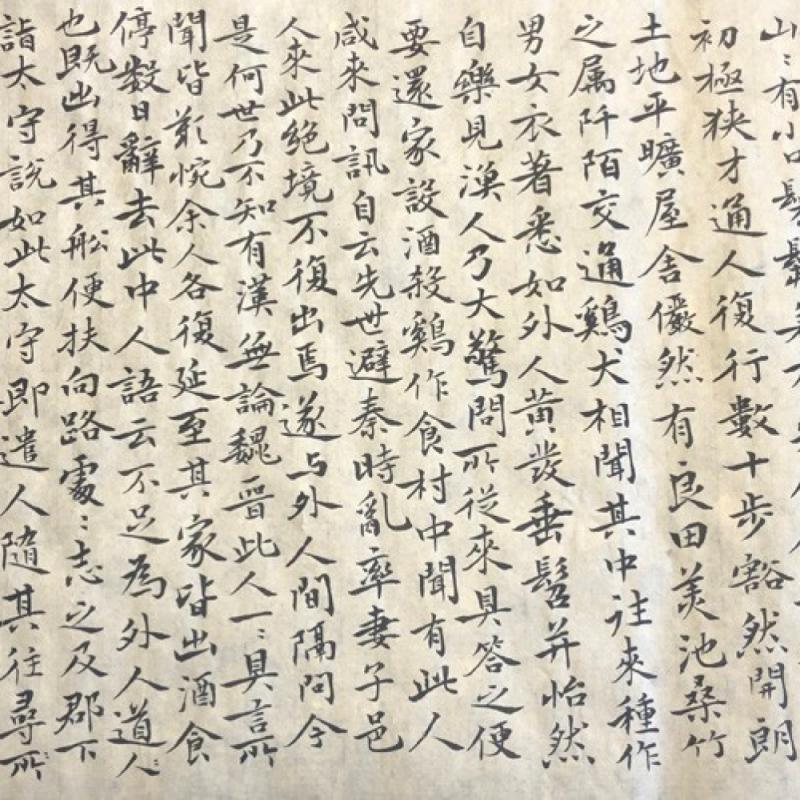 山〻有小口髣髴
初極狹才通人復行數十步豁然開朗
土地平曠屋舍儼然有良田美池桑竹
之属阡陌交通鷄犬相聞其中往來種作
男女衣著悉如外人黃發垂髫并怡然
自樂見漁人乃大驚問所從來具答之便
要還家設酒殺鷄作食村中聞有此人
咸來問訊自云先世避秦時亂率妻子邑
人來此絶境不復出焉遂与外人間隔問今
是何世乃不知有漢無論魏晉此人一〻具言所
聞皆歎惋余人各復延至其家皆出酒食
停數日辭去此中人語云不足為外人道人
也既出得其船便扶向路處〻志之及郡下
詣太守說如此太守即遣人隨其往尋所